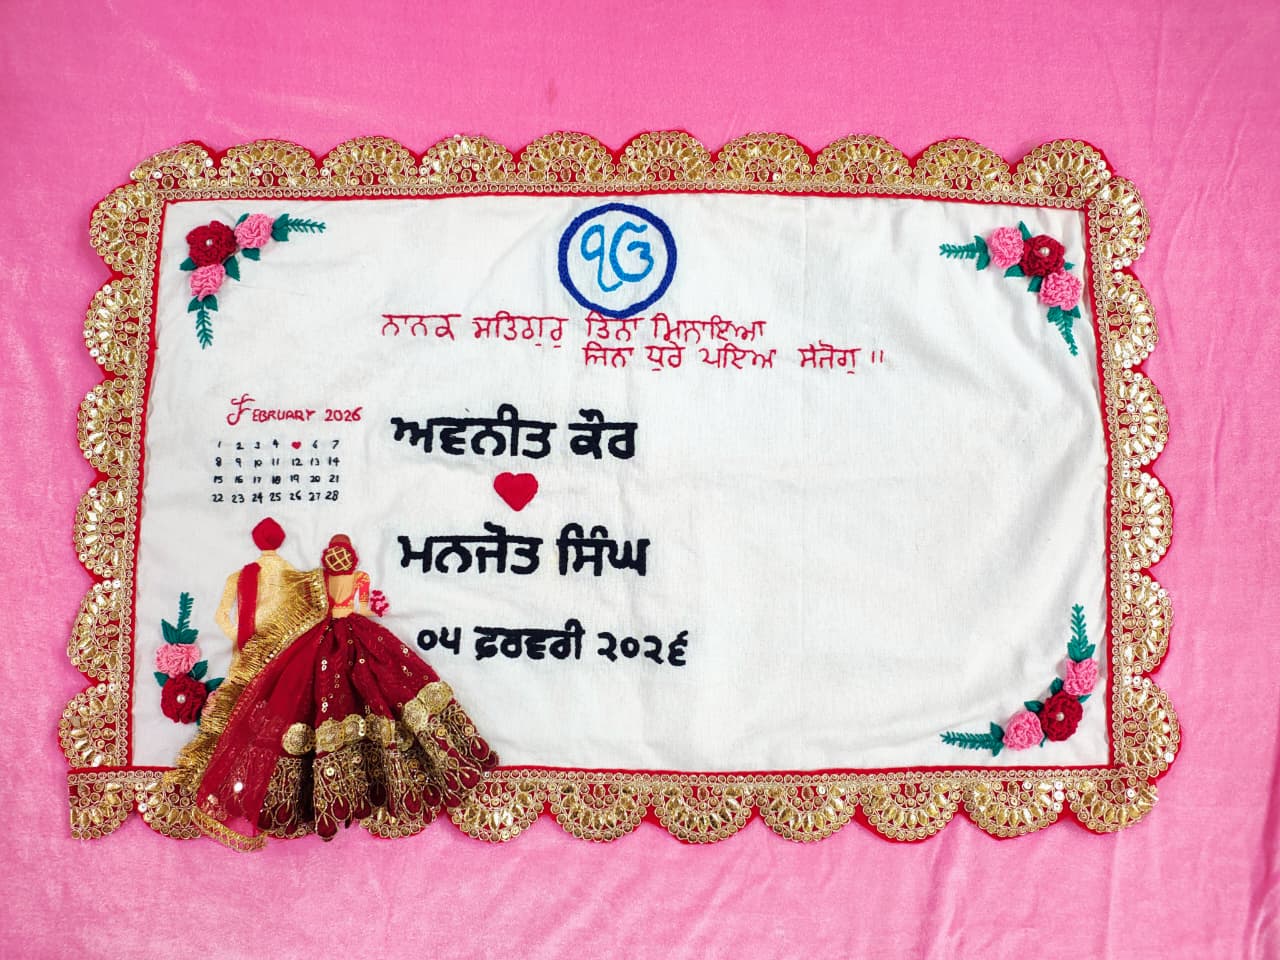 ੴ
ਨਾਨਕ ਸਤਿਗੁਰੁ ਤਿਨਾ ਮਿਲਾਇਆ
ਜਿਨਾ ਧੁਰੇ ਪਇਆ ਸੰਜੋਗੁ ॥
FEBRUARY 2026
1 2 3 4 ♥ 6 7
8 9 10 11 12 13 14
15 16 17 18 19 20 21
22 23 24 25 26 27 28
ਅਵਨੀਤ ਕੌਰ
♥
ਮਨਜੋਤ ਸਿੰਘ
੦੫ ਫ਼ਰਵਰੀ ੨੦੨੬